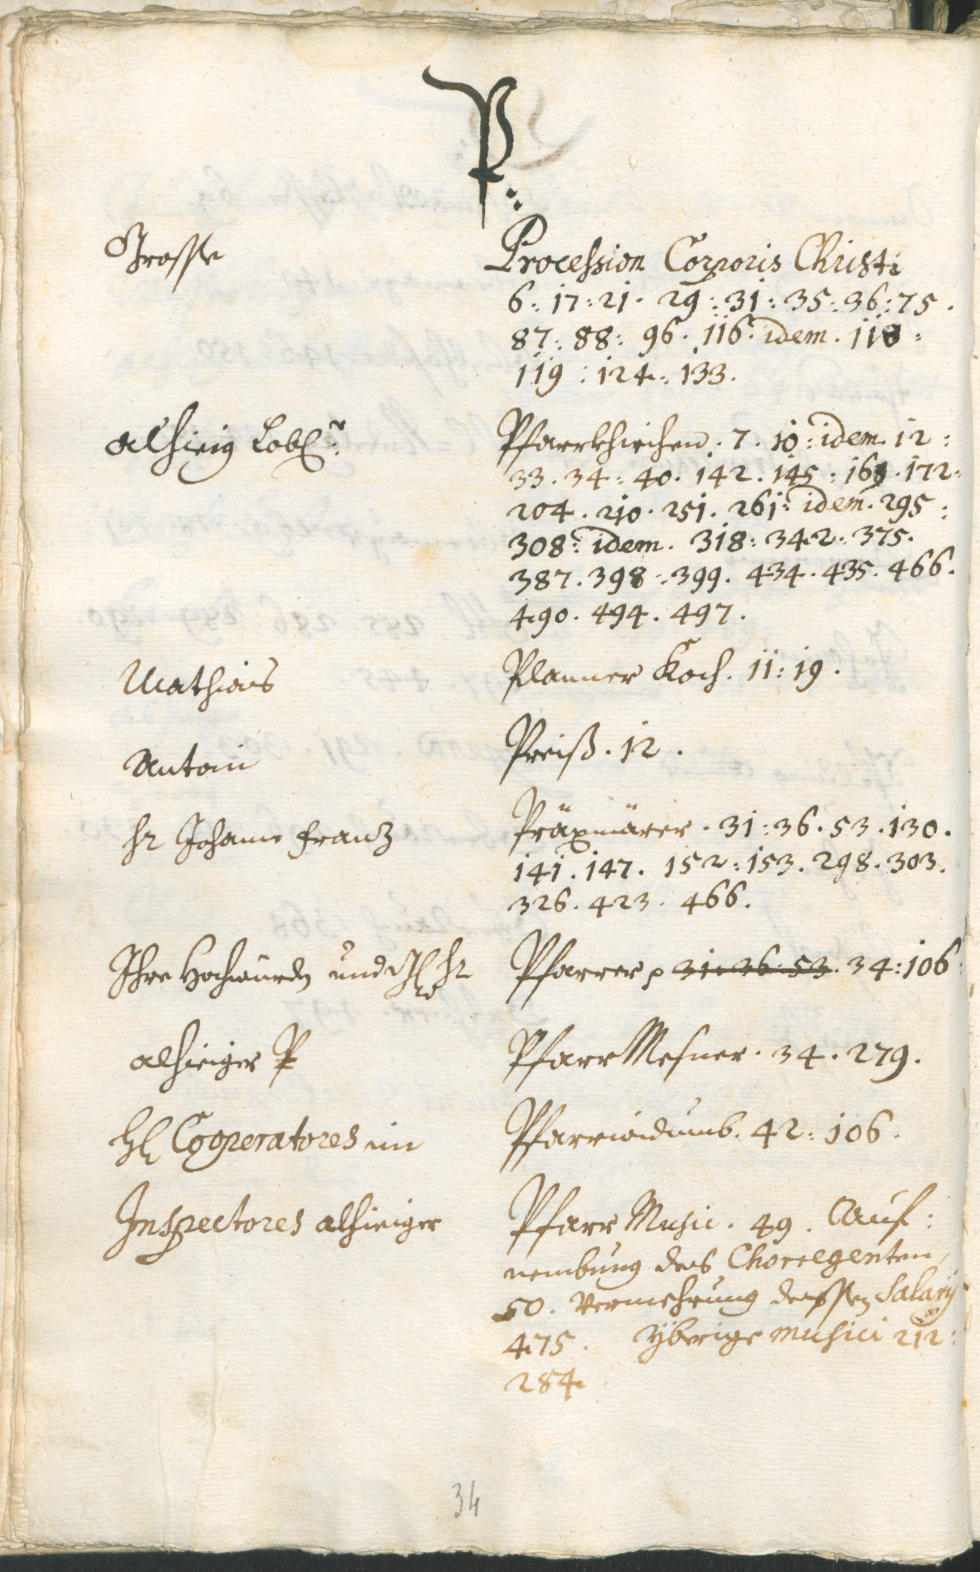 P.
Grosse Procession Corporis Christi
6 : 17 : 21 . 29 : 31 : 35 : 36 : 75 .
87 : 88 : 96 . 116 . idem . 118 :
119 : 124 : 133 .
alhieig Lobl: Pfarrkhirchen . 7 . 10 : idem . 12 :
33 . 34 : 40 . 142 . 145 : 168 . 172 :
204 . 210 . 251 . 261 : idem . 295 :
308 : idem . 318 : 342 . 375 .
387 . 398 : 399 . 434 . 435 . 466 .
490 . 494 . 497 .
Mathias Planner Koch . 11 : 19 .
Antoni Preiß . 12 .
Hr Johann Franz Präxmärer . 31 : 36 . 53 . 130 .
141 . 147 . 152 : 153 . 298 . 303 .
326 . 423 . 466 .
Ihre Hochwürdn und Hr Pfarrer p 31 : 36 : 53 . 34 : 106 :
alhieiger P Pfarr Mesner . 34 . 279 .
HH Cooperatores im Pfarrwidumb . 42 : 106 .
Inspectores alhieiger Pfarr Music . 49 . Auf:
nembung des Choregenten
50 . Vermehrung dessen Salary
475 . yberige musici 212 :
284
34